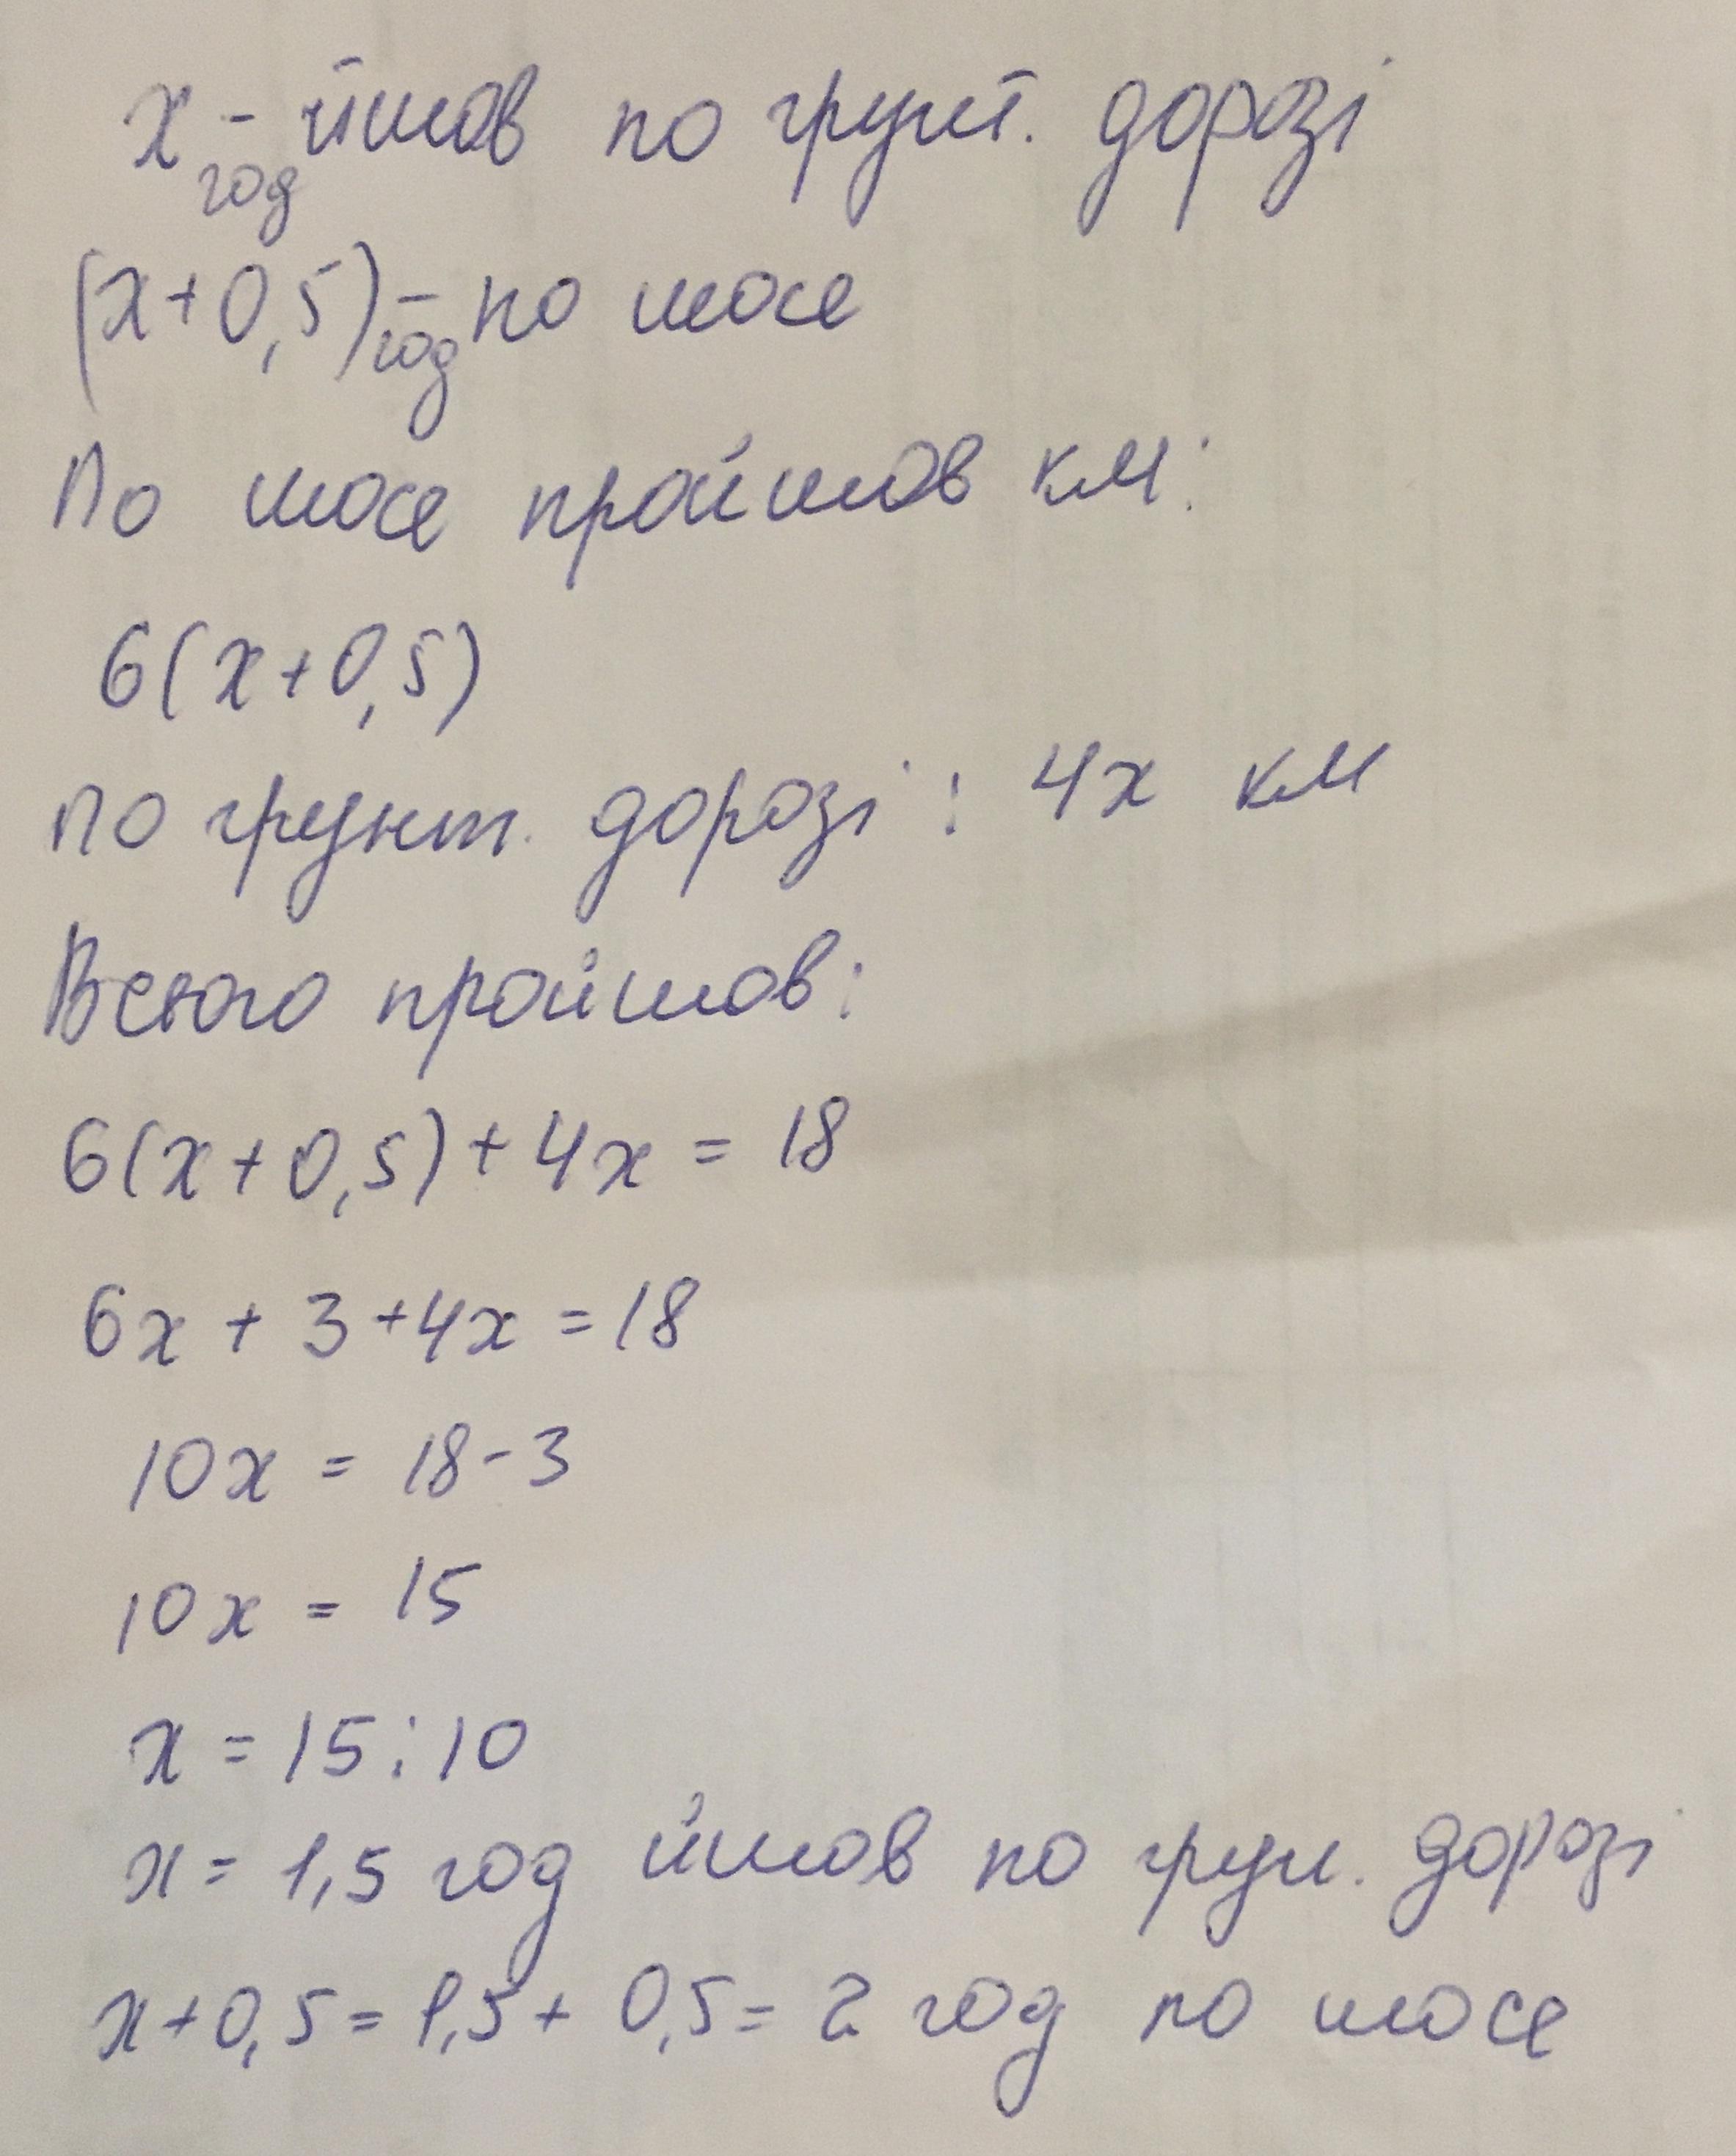 х год - йшов по грунт. дорозі
(х+0,5) год - по шосе
По шосе пройшов км:
6(х+0,5)
по грунт. дорозі: 4х км
Всього пройшов:
6(х+0,5)+4х = 18
6х + 3 +4х = 18
10х = 18-3
10х = 15
х = 15:10
х = 1,5 год йшов по грун. дорозі
х+0,5 = 1,5 + 0,5 = 2 год по шосе